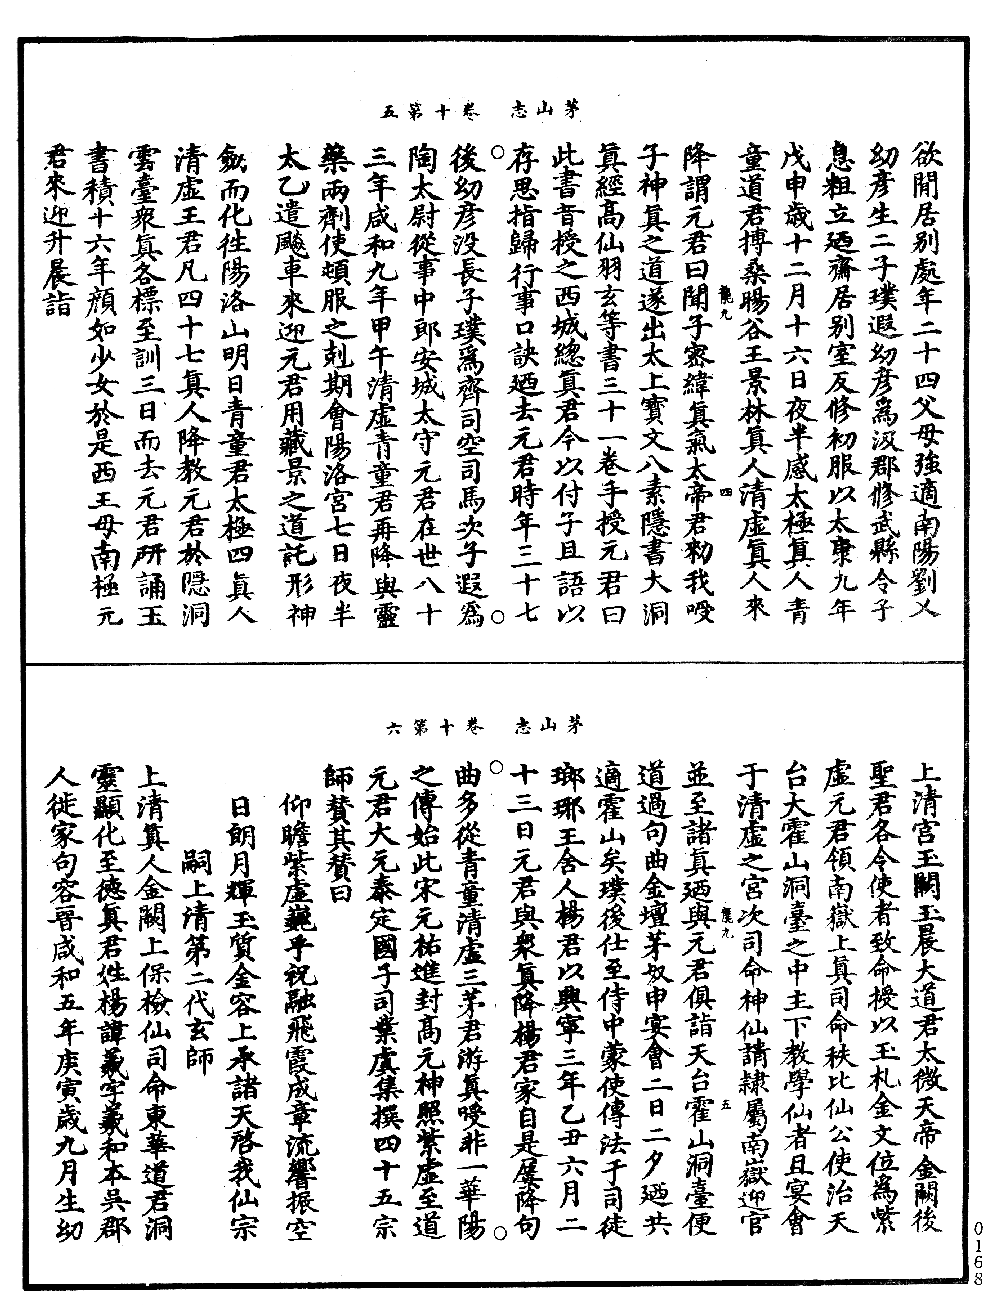 茅山志　卷十第五
欲閒居别處年二十四父母強適南陽劉乂
幼彦生二子璞遐幼彦爲汲郡修武縣令子
息粗立廼齋居别室反修初服以太康九年
戊申歲十二月十六日夜半感太極真人青
童道君摶桑暘谷王景林真人清虛真人來
龍九　四
降謂元君曰聞子密緯真氣太帝君勑我㖟
子神真之道遂出太上寶文八素隱書大洞
真經髙仙羽玄等書三十一卷手授元君曰
此書昔授之西城緫真君今以付子且語以
存思指歸行事口訣廼去元君時年三十七
後幼彦没長子璞爲齊司空司馬次子遐爲
陶太尉從事中郎安城太守元君在世八十
三年咸和九年甲午清虛青童君再降與靈
藥兩劑使頓服之剋期會陽洛宮七日夜半
太乙遣飈車來迎元君用藏景之道託形神
劒而化徃陽洛山明日青童君太極四真人
清虛王君凡四十七真人降教元君於隱洞
雲臺衆真各標至訓三日而去元君所誦玉
書積十六年顔如少女於是西王母南極元
君來迎升晨詣
茅山志　卷十第六
上清宮玉闕玉晨大道君太微天帝金闕後
聖君各令使者致命授以玉札金文位為紫
虛元君領南嶽上真司命秩比仙公使治天
台大霍山洞臺之中主下教學仙者且宴會
于清虛之宮次司命神仙請隸屬南嶽迎官
龍九　五
並至諸真廼與元君俱詣天台霍山洞臺便
道過句曲金壇茅奴申宴會二日二夕廼共
適霍山矣璞後仕至侍中蒙使傳法于司徒
瑯琊王舍人楊君以興寧三年乙丑六月二
十三日元君與衆真降楊君家自是屢降句
曲多從青童清虛三茅君游真㖟非一華陽
之傳始此宋元祐進封髙元神照紫虛至道
元君大元泰定國子司業虞集撰四十五宗
師賛其賛曰
仰瞻紫虛巍乎祝融飛霞成章流響振空
日朗月輝玉質金容上承諸天啓我仙宗
嗣上清第二代玄師
上清真人金闕上保檢仙司命東華道君洞
靈顯化至德真君姓楊諱羲字羲和本吳郡
人徙家句容晉咸和五年庚寅歲九月生幼
0168